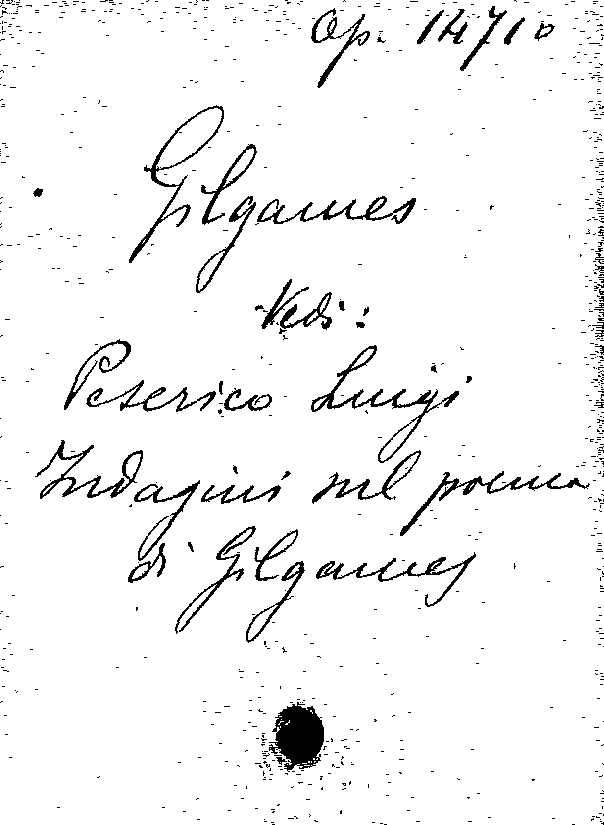 Op. 14710
Gilgames
Vedi:
Peserico Luigi
Indagini sul poema
di Gilgames